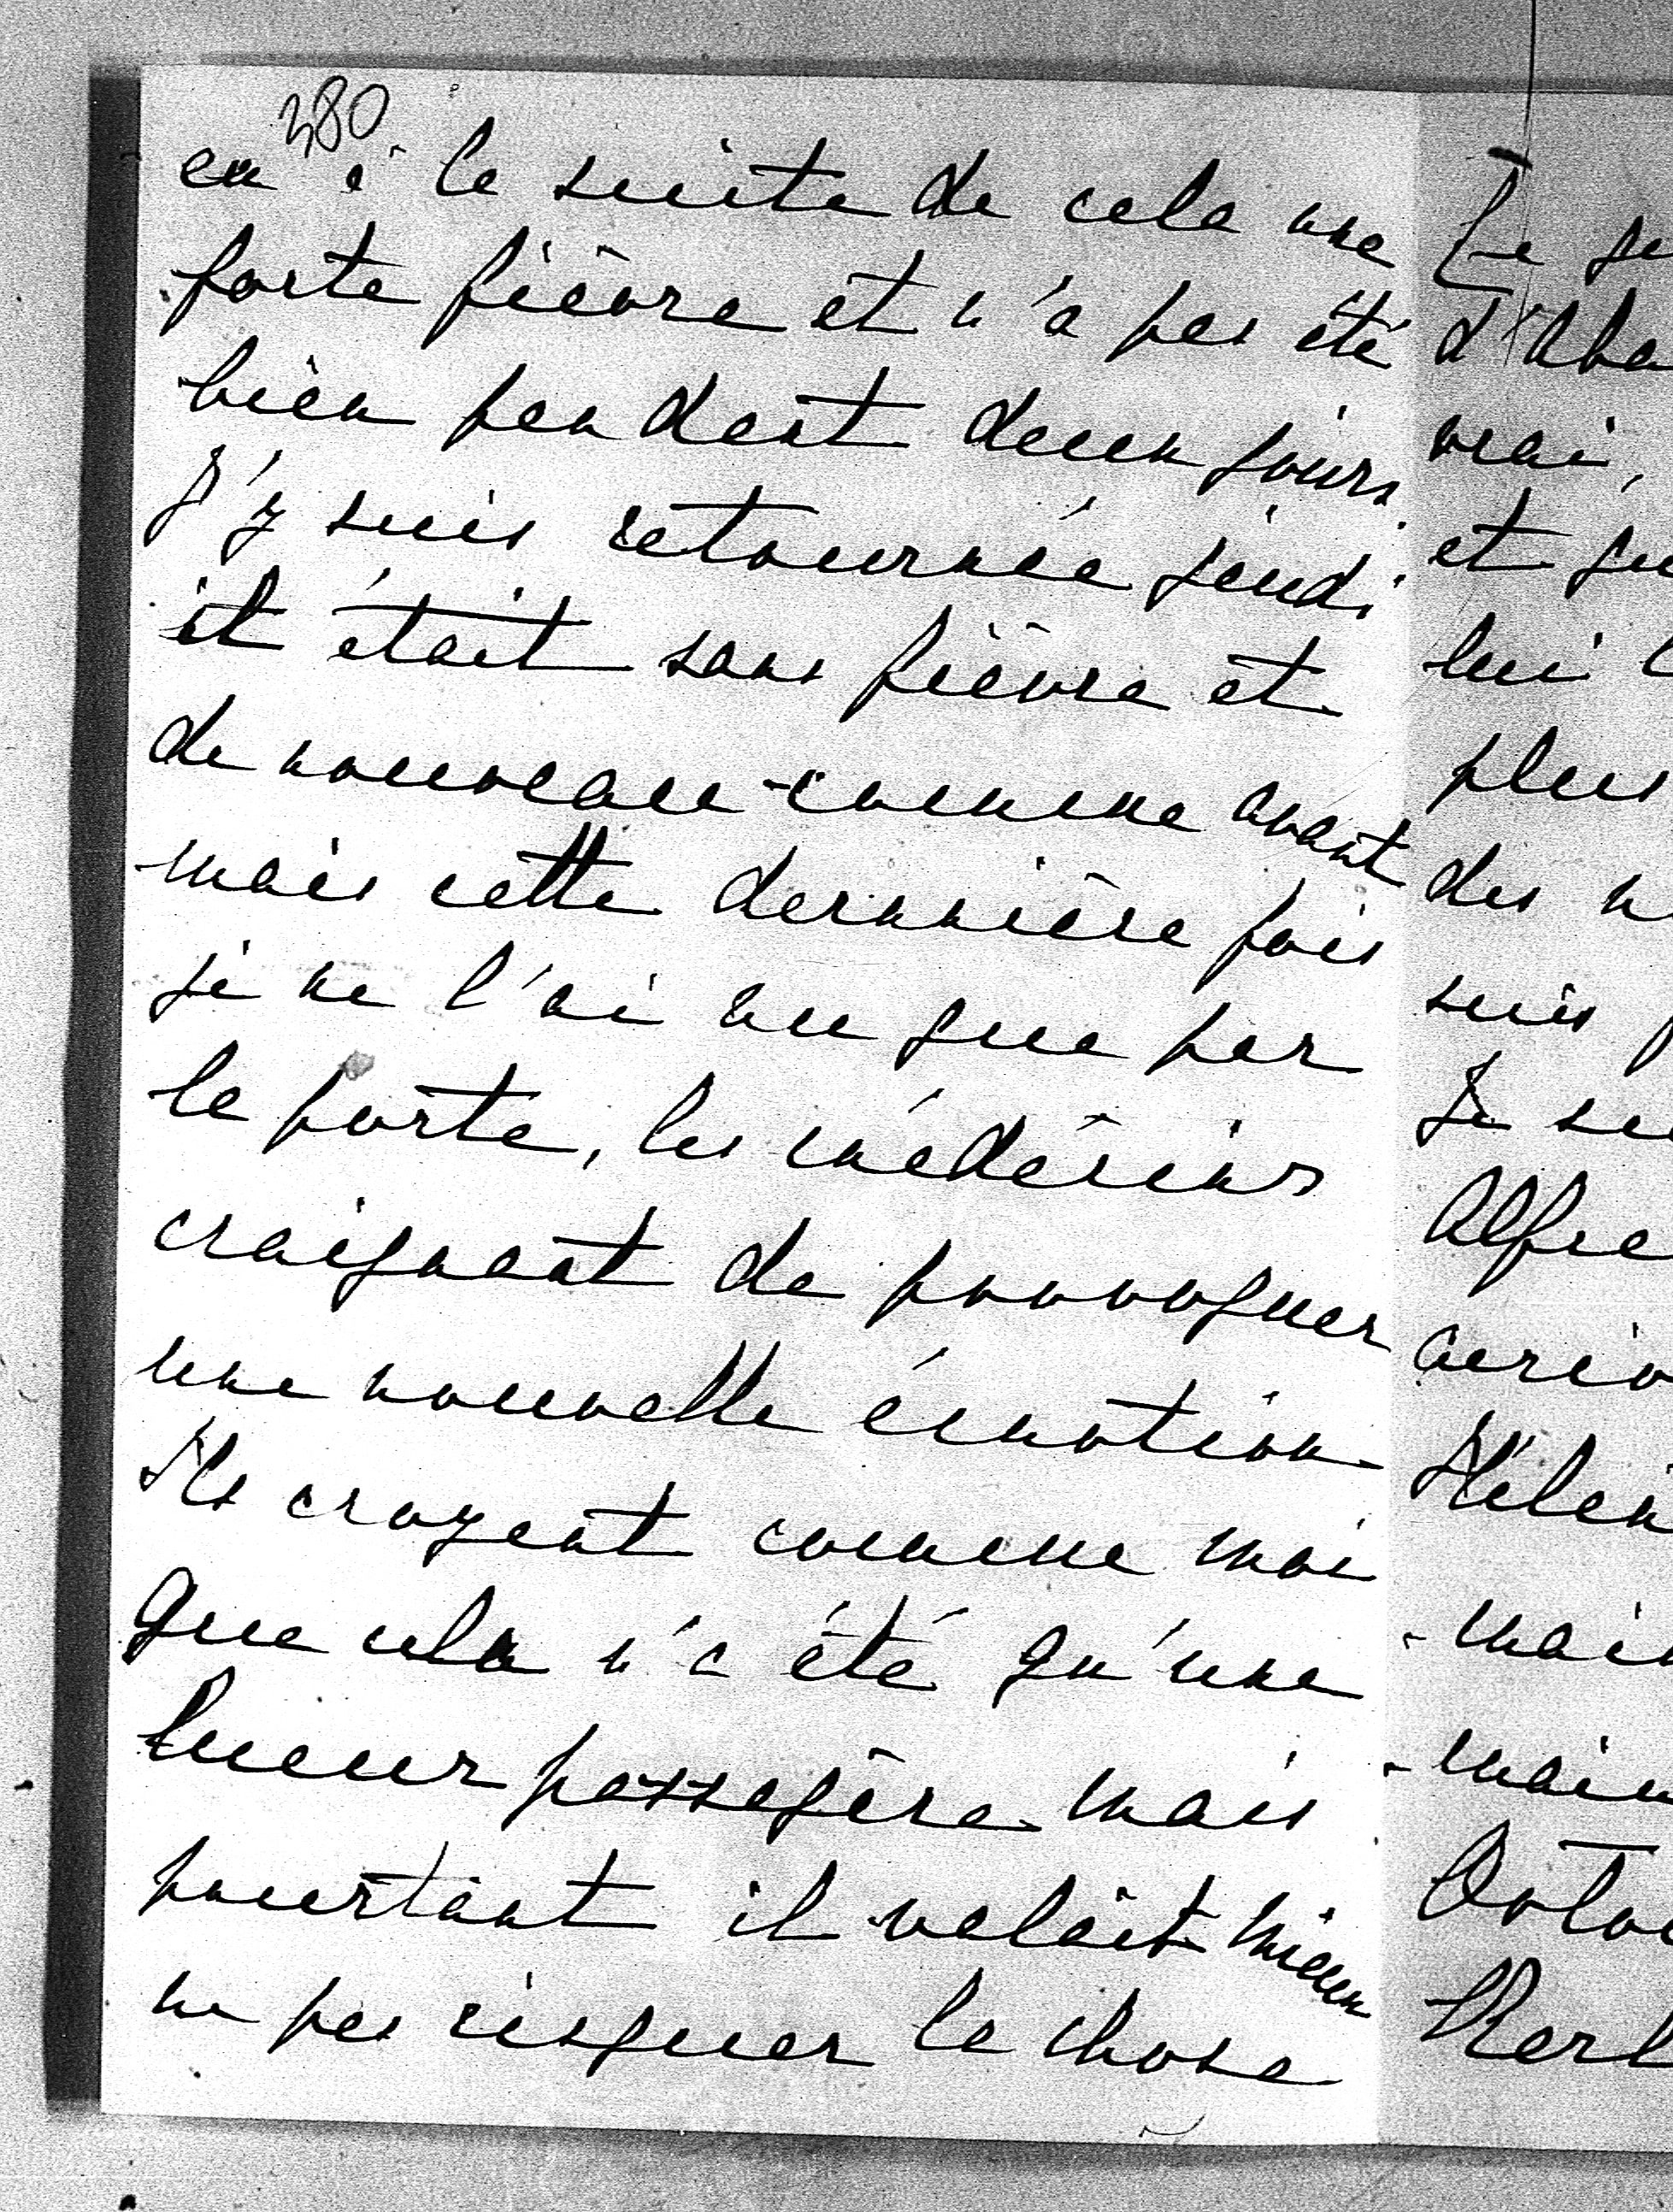 380
eu à la suite de cela une
forte fièvre et n'a pas été
bien pendant deux jours.
J'y suis retournée jeudi
il était sans fièvre et
de nouveau comme avant
mais cette dernière fois
je ne l'ai vu que par
la porte, les médecins
craignant de provoquer
une nouvelle émotion.
Ils croyent comme moi
que cela n'a été qu'une
lueur passagère mais
pourtant il valait mieux
ne pas risquer la chose
d'
vrai,
et
lui
plus
des
suis
Je